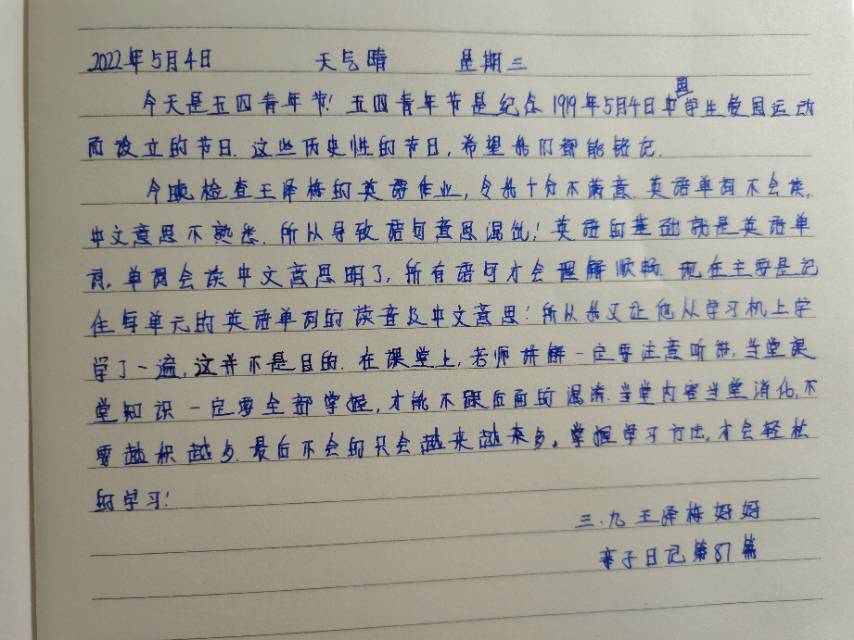 2022年5月4日 天气晴 星期三
今天是五四青年节！五四青年节是纪念1919年5月4日中国学生爱国运动
而设立的节日.这些历史性的节日,希望我们都能铭记.
今晚检查王泽梅的英语作业,令我十分不满意.英语单词不会读,
中文意思不熟悉.所以导致语句意思混乱！英语的基础就是英语单
词.单词会读中文意思明了,所有语句才会理解顺畅.现在主要是记
住每单元的英语单词的读音及中文意思！所以我又让他从学习机上学
学了一遍,这并不是目的.在课堂上,老师讲解一定要注意听讲.当堂课
堂知识一定要全部掌握,才能不跟后面的混淆.当堂内容当堂消化,不
要越积越多.最后不会的只会越来越来多。掌握学习方法,才会轻松
的学习！
三.九王泽梅妈妈
亲子日记第87篇